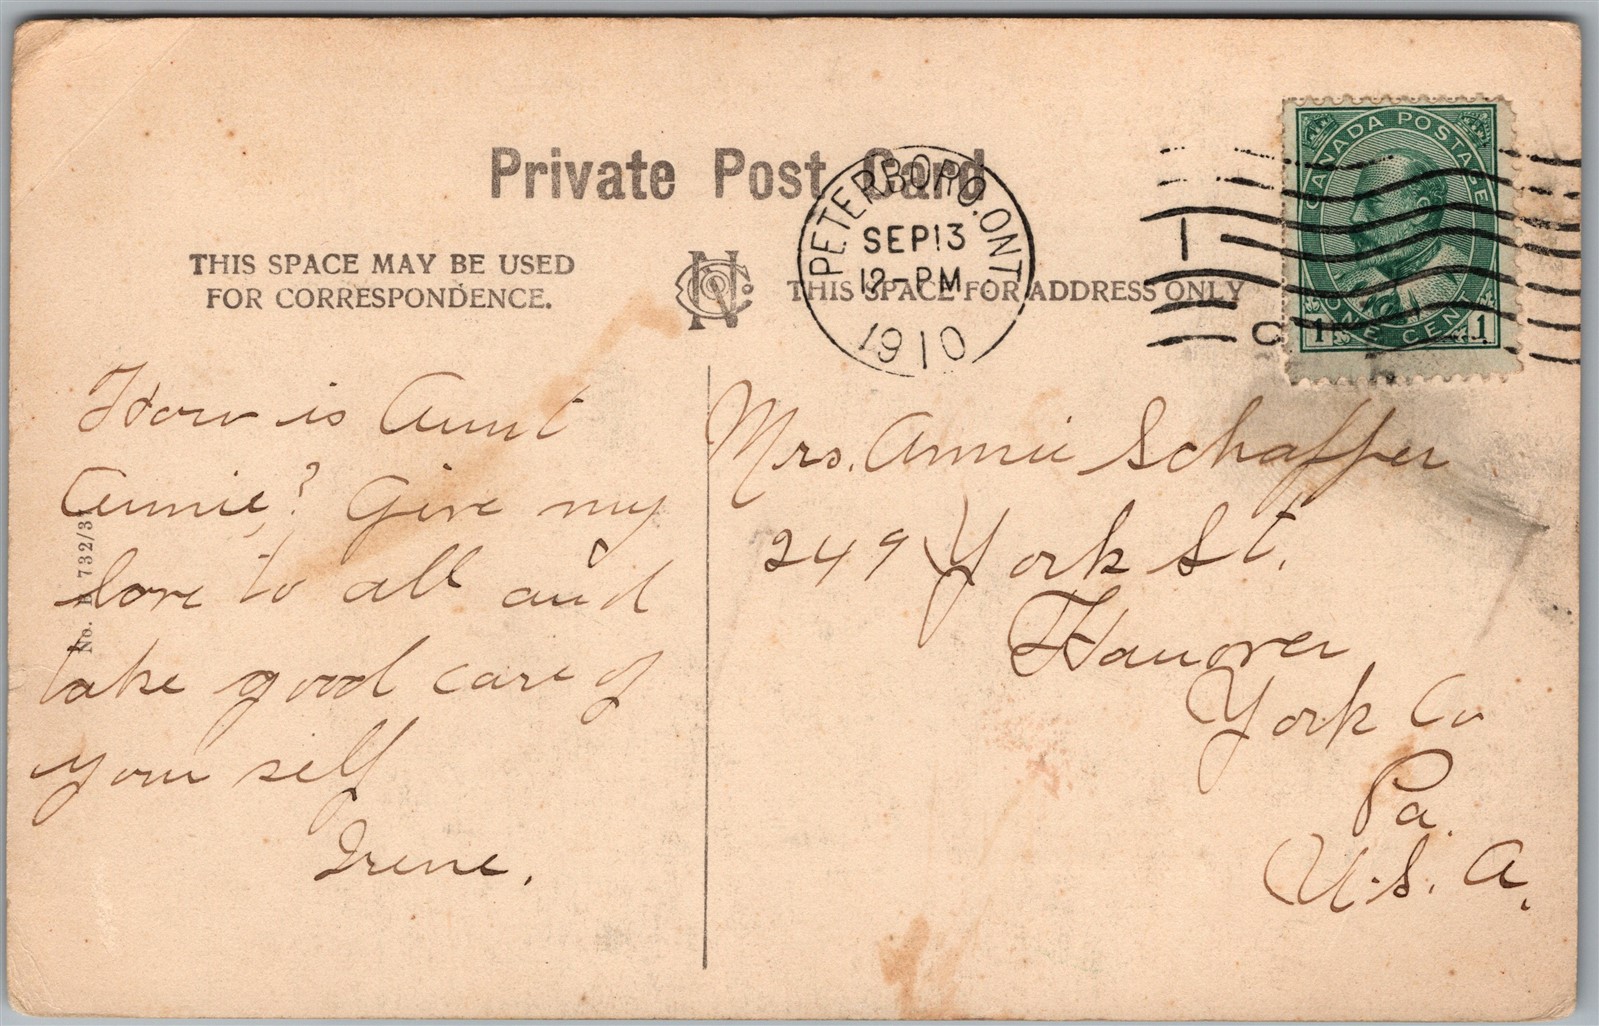 Private Post Card
THIS SPACE MAY BE USED
FOR CORRESPONDENCE.
THIS SPACE FOR ADDRESS ONLY
PETERBORO. ONT.
SEP 13
12-PM
1910
1
C
CANADA POSTAGE
ONE CENT
1 1
How is Aunt
Annie? Give my
love to all and
take good care of
your self
Irene.
Mrs. Annie Schaffer
249 York St.
Hanover
York Co
Pa.
U.S.A.
No. 732/3